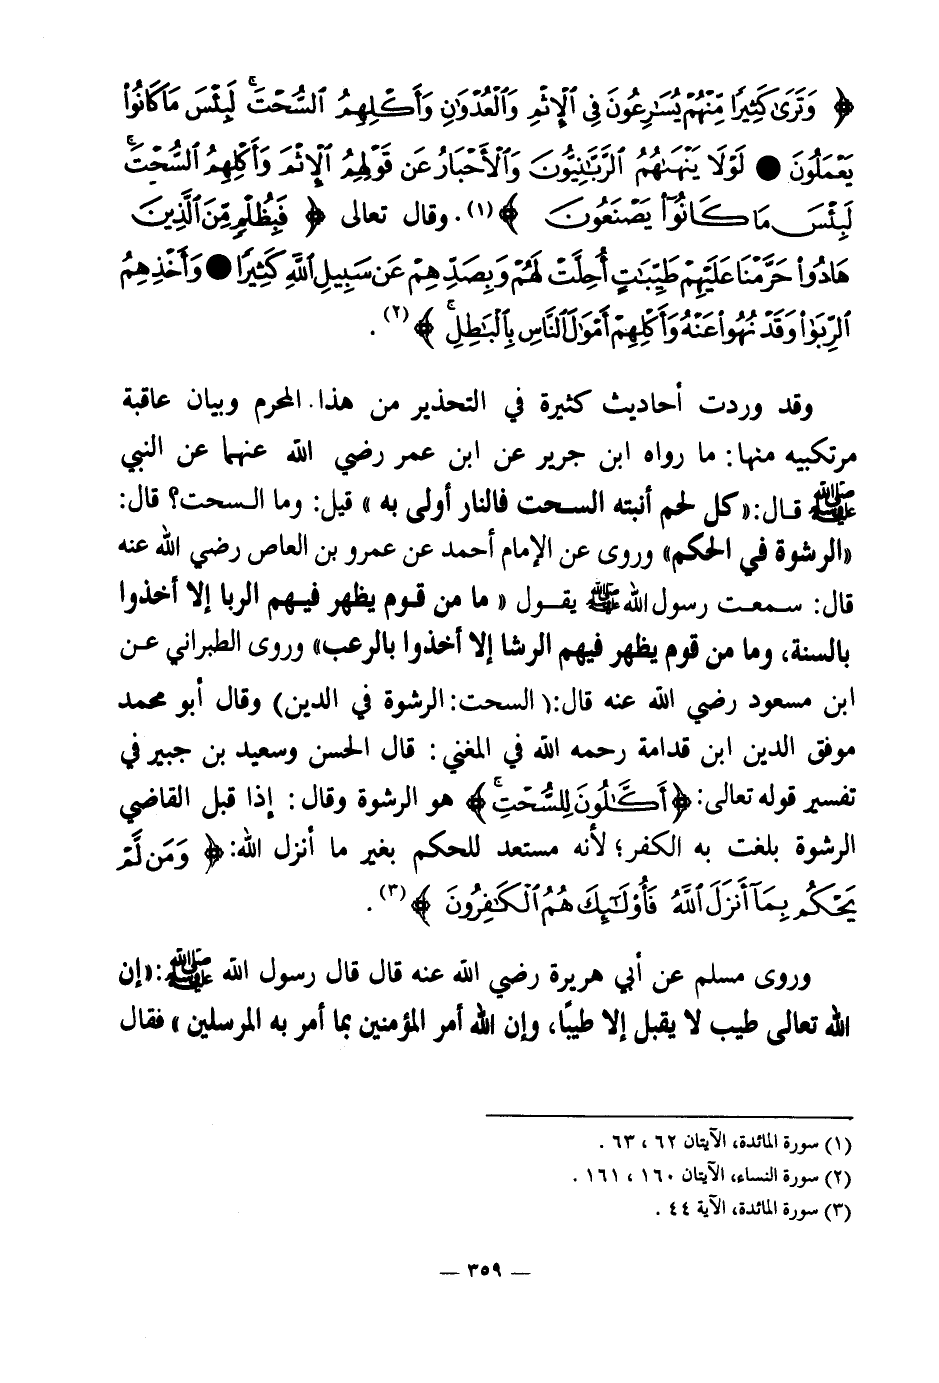 ﴿ وَتَرَىٰ كَثِيرًا مِّنْهُمْ يُسَارِعُونَ فِي ٱلْإِثْمِ وَٱلْعُدْوَانِ وَأَكْلِهِمُ ٱلسُّحْتَ ۚ لَبِئْسَ مَا كَانُوا۟
يَعْمَلُونَ ● لَوْلَا يَنْهَاهُمُ ٱلرَّبَّانِيُّونَ وَٱلْأَحْبَارُ عَن قَوْلِهِمُ ٱلْإِثْمَ وَأَكْلِهِمُ ٱلسُّحْتَ ۚ
لَبِئْسَ مَا كَانُوا۟ يَصْنَعُونَ ﴾(١). وقال تعالى ﴿ فَبِظُلْمٍ مِّنَ ٱلَّذِينَ
هَادُوا۟ حَرَّمْنَا عَلَيْهِمْ طَيِّبَاتٍ أُحِلَّتْ لَهُمْ وَبِصَدِّهِمْ عَن سَبِيلِ ٱللَّهِ كَثِيرًا ● وَأَخْذِهِمُ
ٱلرِّبَوٰا۟ وَقَدْ نُهُوا۟ عَنْهُ وَأَكْلِهِمْ أَمْوَالَ ٱلنَّاسِ بِٱلْبَاطِلِ ۚ ﴾(٢).
وقد وردت أحاديث كثيرة في التحذير من هذا المحرم وبيان عاقبة
مرتكبيه منها: ما رواه ابن جرير عن ابن عمر رضي الله عنهما عن النبي
ﷺ قال:«كل لحم أنبته السحت فالنار أولى به » قيل: وما السحت؟ قال:
«الرشوة في الحكم» وروى عن الإمام أحمد عن عمرو بن العاص رضي الله عنه
قال: سمعت رسول الله ﷺ يقول « ما من قوم يظهر فيهم الربا إلا أخذوا
بالسنة، وما من قوم يظهر فيهم الرشا إلا أخذوا بالرعب» وروى الطبراني عن
ابن مسعود رضي الله عنه قال:( السحت: الرشوة في الدين) وقال أبو محمد
موفق الدين ابن قدامة رحمه الله في المغني: قال الحسن وسعيد بن جبير في
تفسير قوله تعالى: ﴿أَكَّالُونَ لِلسُّحْتِ ۚ﴾ هو الرشوة وقال: إذا قبل القاضي
الرشوة بلغت به الكفر؛ لأنه مستعد للحكم بغير ما أنزل الله: ﴿ وَمَن لَّمْ
يَحْكُم بِمَآ أَنزَلَ ٱللَّهُ فَأُو۟لَٰٓئِكَ هُمُ ٱلْكَافِرُونَ ﴾(٣).
وروى مسلم عن أبي هريرة رضي الله عنه قال قال رسول الله ﷺ:«إن
الله تعالى طيب لا يقبل إلا طيبًا، وإن الله أمر المؤمنين بما أمر به المرسلين » فقال
(١) سورة المائدة، الآيتان ٦٢ ، ٦٣ .
(٢) سورة النساء، الآيتان ١٦٠ ، ١٦١ .
(٣) سورة المائدة، الآية ٤٤ .
— ٣٥٩ —